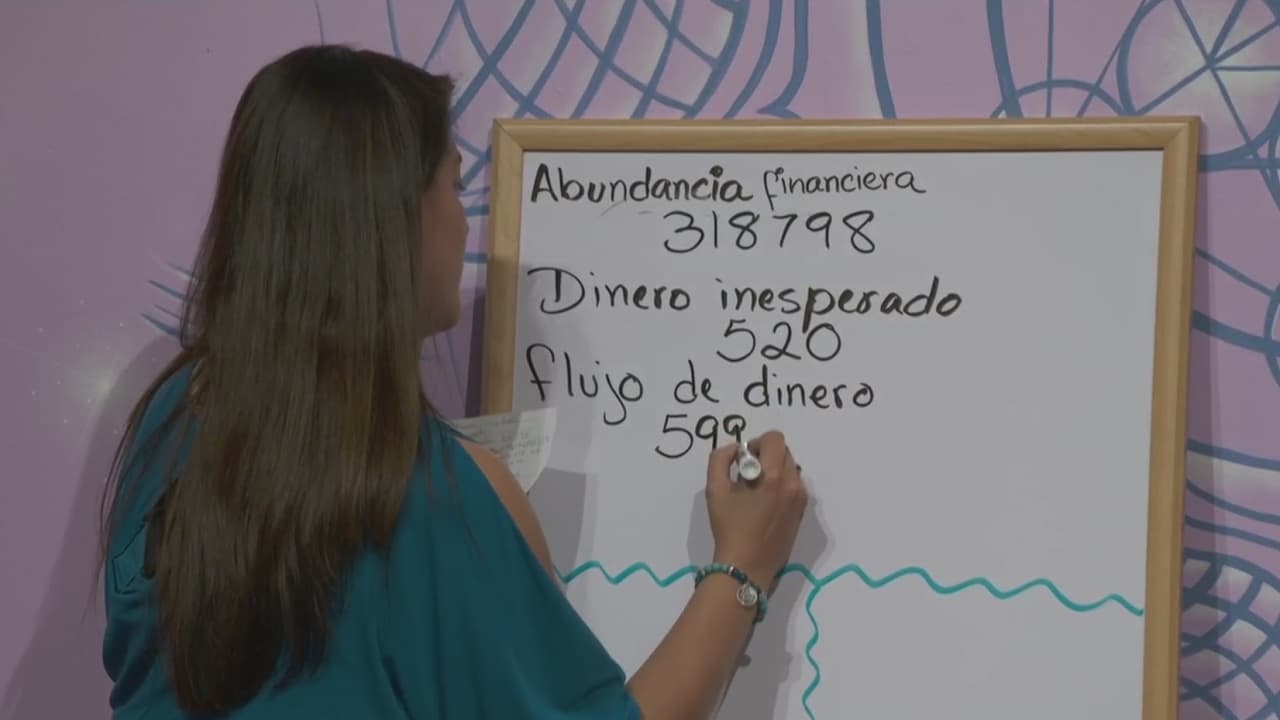 Abundancia financiera
318798
Dinero inesperado
520
flujo de dinero
599